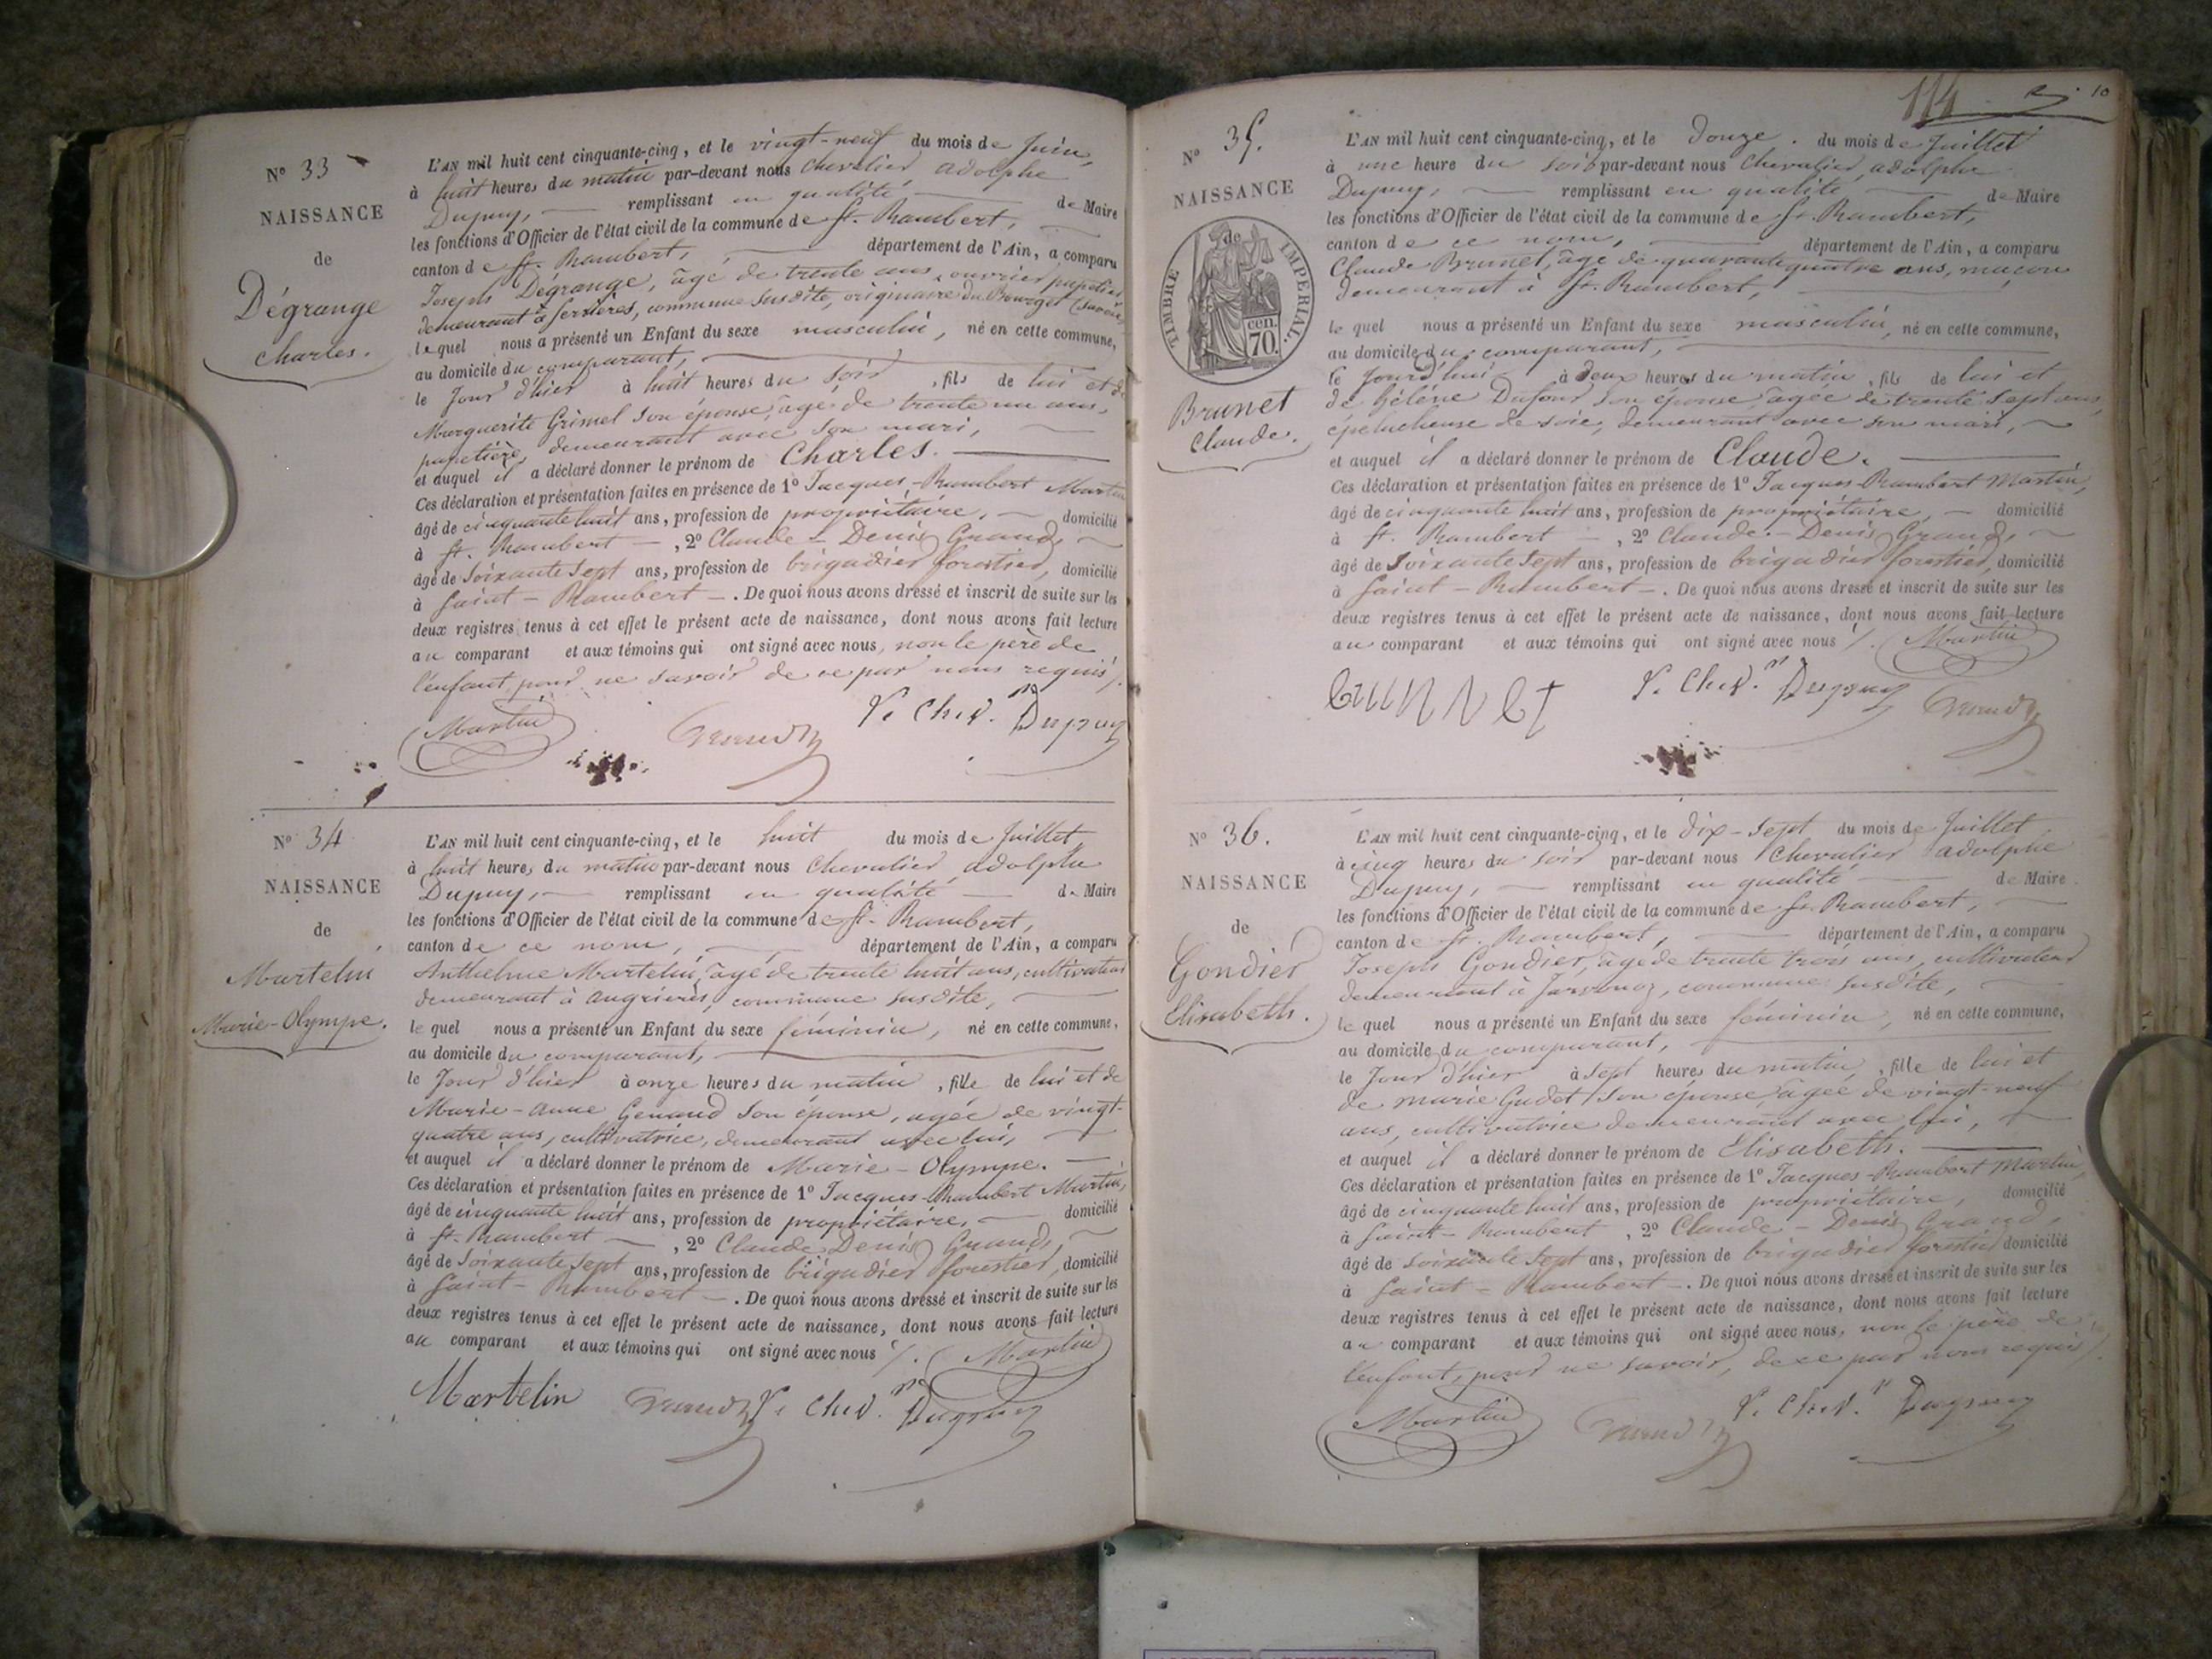 N° 33
NAISSANCE
de
Dégrange
Charles.
L'AN mil huit cent cinquante-cinq, et le vingt-neuf du mois de Juin,
à huit heures du matin par-devant nous Chevalier, adolphe
Dupuy, remplissant en qualité de Maire
les fonctions d'Officier de l'état civil de la commune de St. Rambert,
canton de St. Rambert, département de l'Ain, a comparu
Joseph Dégrange, âgé de trente ans, ouvrier papetier,
demeurant à serrières, commune susdite, originaire du Bourget (savoie)
lequel nous a présenté un Enfant du sexe masculin, né en cette commune,
au domicile du comparant,
le Jour d'hier à huit heures du soir, fils de lui et de
Marguerite Grimel son épouse, âgé de trente un ans,
papetière, demeurant avec son mari,
et auquel il a déclaré donner le prénom de Charles.
Ces déclaration et présentation faites en présence de 1° Jacques-Rambert Martin
âgé de cinquante huit ans, profession de propriétaire, domicilié
à St. Rambert, 2° Claude-Denis Grand,
âgé de soixante sept ans, profession de brigadier forestier, domicilié
à Saint-Rambert. De quoi nous avons dressé et inscrit de suite sur les
deux registres tenus à cet effet le présent acte de naissance, dont nous avons fait lecture
au comparant et aux témoins qui ont signé avec nous, non le père de
l'enfant, pour ne savoir de ce par nous requis /.
Martin Grand V. Chev. Dupuy
N° 34
NAISSANCE
de
Martelin
Marie-Olympe.
L'AN mil huit cent cinquante-cinq, et le huit du mois de Juillet,
à huit heures du matin par-devant nous Chevalier, adolphe
Dupuy, remplissant en qualité de Maire
les fonctions d'Officier de l'état civil de la commune de St. Rambert,
canton de ce nom, département de l'Ain, a comparu
Anthelme Martelin, âgé de trente huit ans, cultivateur
demeurant à angrières, commune susdite,
lequel nous a présenté un Enfant du sexe féminin, né en cette commune,
au domicile du comparant,
le Jour d'hier à onze heures du matin, fille de lui et de
Marie-anne Genaud son épouse, agée de vingt-
quatre ans, cultivatrice, demeurant avec lui,
et auquel il a déclaré donner le prénom de Marie-Olympe.
Ces déclaration et présentation faites en présence de 1° Jacques-Rambert Martin,
âgé de cinquante huit ans, profession de propriétaire, domicilié
à St. Rambert, 2° Claude Denis Grand,
âgé de soixante sept ans, profession de brigadier forestier, domicilié
à Saint-Rambert. De quoi nous avons dressé et inscrit de suite sur les
deux registres tenus à cet effet le présent acte de naissance, dont nous avons fait lecture
au comparant et aux témoins qui ont signé avec nous /. Martin
Martelin Grand V. Chev. Dupuy
114 10
N° 35.
NAISSANCE
de
TIMBRE IMPERIAL.
cen.
70.
Brunet
Claude.
L'AN mil huit cent cinquante-cinq, et le douze du mois de Juillet
à une heure du soir par-devant nous Chevalier, adolphe
Dupuy, remplissant en qualité de Maire
les fonctions d'Officier de l'état civil de la commune de St. Rambert,
canton de ce nom, département de l'Ain, a comparu
Claude Brunet, âgé de quarante quatre ans, maçon
demeurant à St. Rambert,
lequel nous a présenté un Enfant du sexe masculin, né en cette commune,
au domicile du comparant,
le Jourd'hui à deux heures du matin, fils de lui et
de hélène Dufour son épouse, agée de trente sept ans,
éplucheuse de soie, demeurant avec son mari,
et auquel il a déclaré donner le prénom de Claude.
Ces déclaration et présentation faites en présence de 1° Jacques-Rambert Martin,
âgé de cinquante huit ans, profession de propriétaire, domicilié
à St. Rambert, 2° Claude-Denis Grand,
âgé de soixante sept ans, profession de brigadier forestier, domicilié
à Saint-Rambert. De quoi nous avons dressé et inscrit de suite sur les
deux registres tenus à cet effet le présent acte de naissance, dont nous avons fait lecture
au comparant et aux témoins qui ont signé avec nous /. Martin
brunnet V. Chev. Dupuy Grand
N° 36.
NAISSANCE
de
Gondier
Elisabeth.
L'AN mil huit cent cinquante-cinq, et le dix-sept du mois de Juillet
à cinq heures du soir par-devant nous Chevalier adolphe
Dupuy, remplissant en qualité de Maire
les fonctions d'Officier de l'état civil de la commune de St. Rambert,
canton de St. Rambert, département de l'Ain, a comparu
Joseph Gondier, âgé de trente trois ans, cultivateur
demeurant à Javornoz, commune susdite,
lequel nous a présenté un Enfant du sexe féminin, né en cette commune,
au domicile du comparant,
le Jour d'hier à sept heures du matin, fille de lui et
de marie Gudet son épouse, agée de vingt-neuf
ans, cultivatrice demeurant avec lui,
et auquel il a déclaré donner le prénom de Elisabeth.
Ces déclaration et présentation faites en présence de 1° Jacques-Rambert Martin,
âgé de cinquante huit ans, profession de propriétaire, domicilié
à Saint-Rambert, 2° Claude-Denis Grand,
âgé de soixante sept ans, profession de brigadier forestier domicilié
à Saint-Rambert. De quoi nous avons dressé et inscrit de suite sur les
deux registres tenus à cet effet le présent acte de naissance, dont nous avons fait lecture
au comparant et aux témoins qui ont signé avec nous, non le père de
l'enfant, pour ne savoir, de ce par nous requis /.
Martin Grand V. Chev. Dupuy